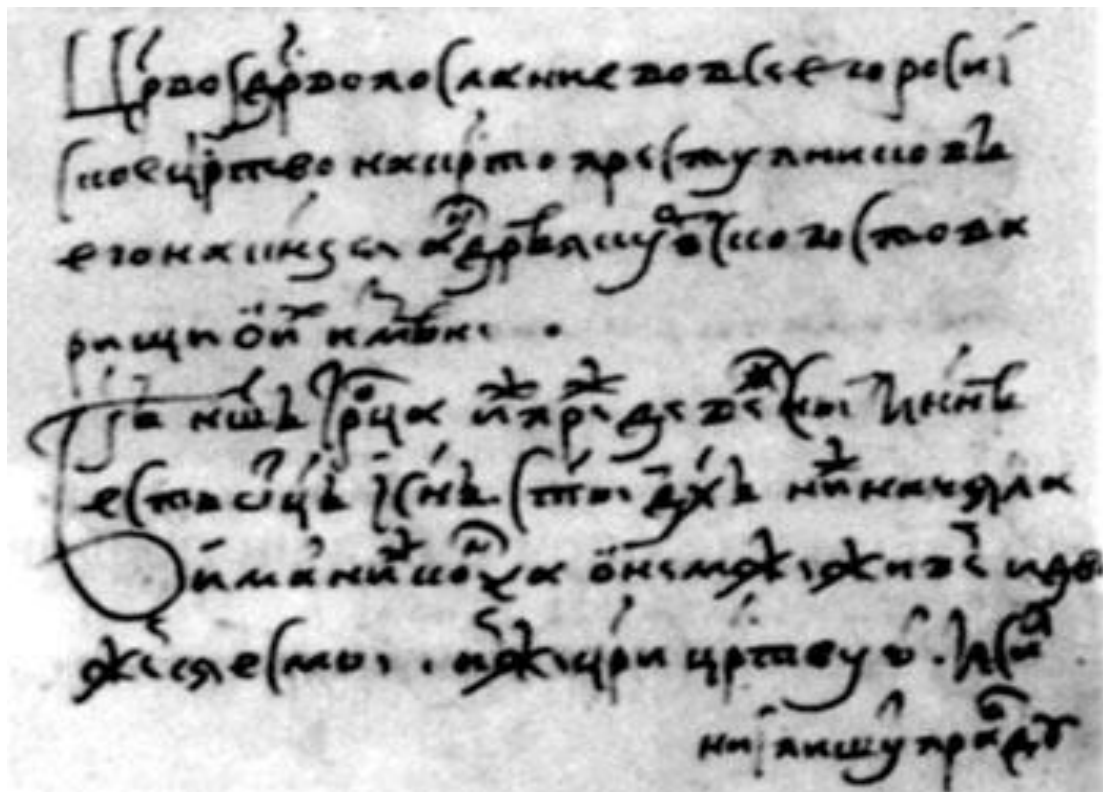 Црво гсдрво послание во все его росиі
ское црство на крто преступников
его на кнѕя андрѣя курбского с това
рищи о их измѣне.
Бгъ нашъ трца иже преже векъ сыи и ннѣ
есть оцъ и снъ и стыи дхъ ниже начала
имать ниже конца о нем же живем и дви
жемся есмы. им же цри црствуют. и сил
нии пишут правду